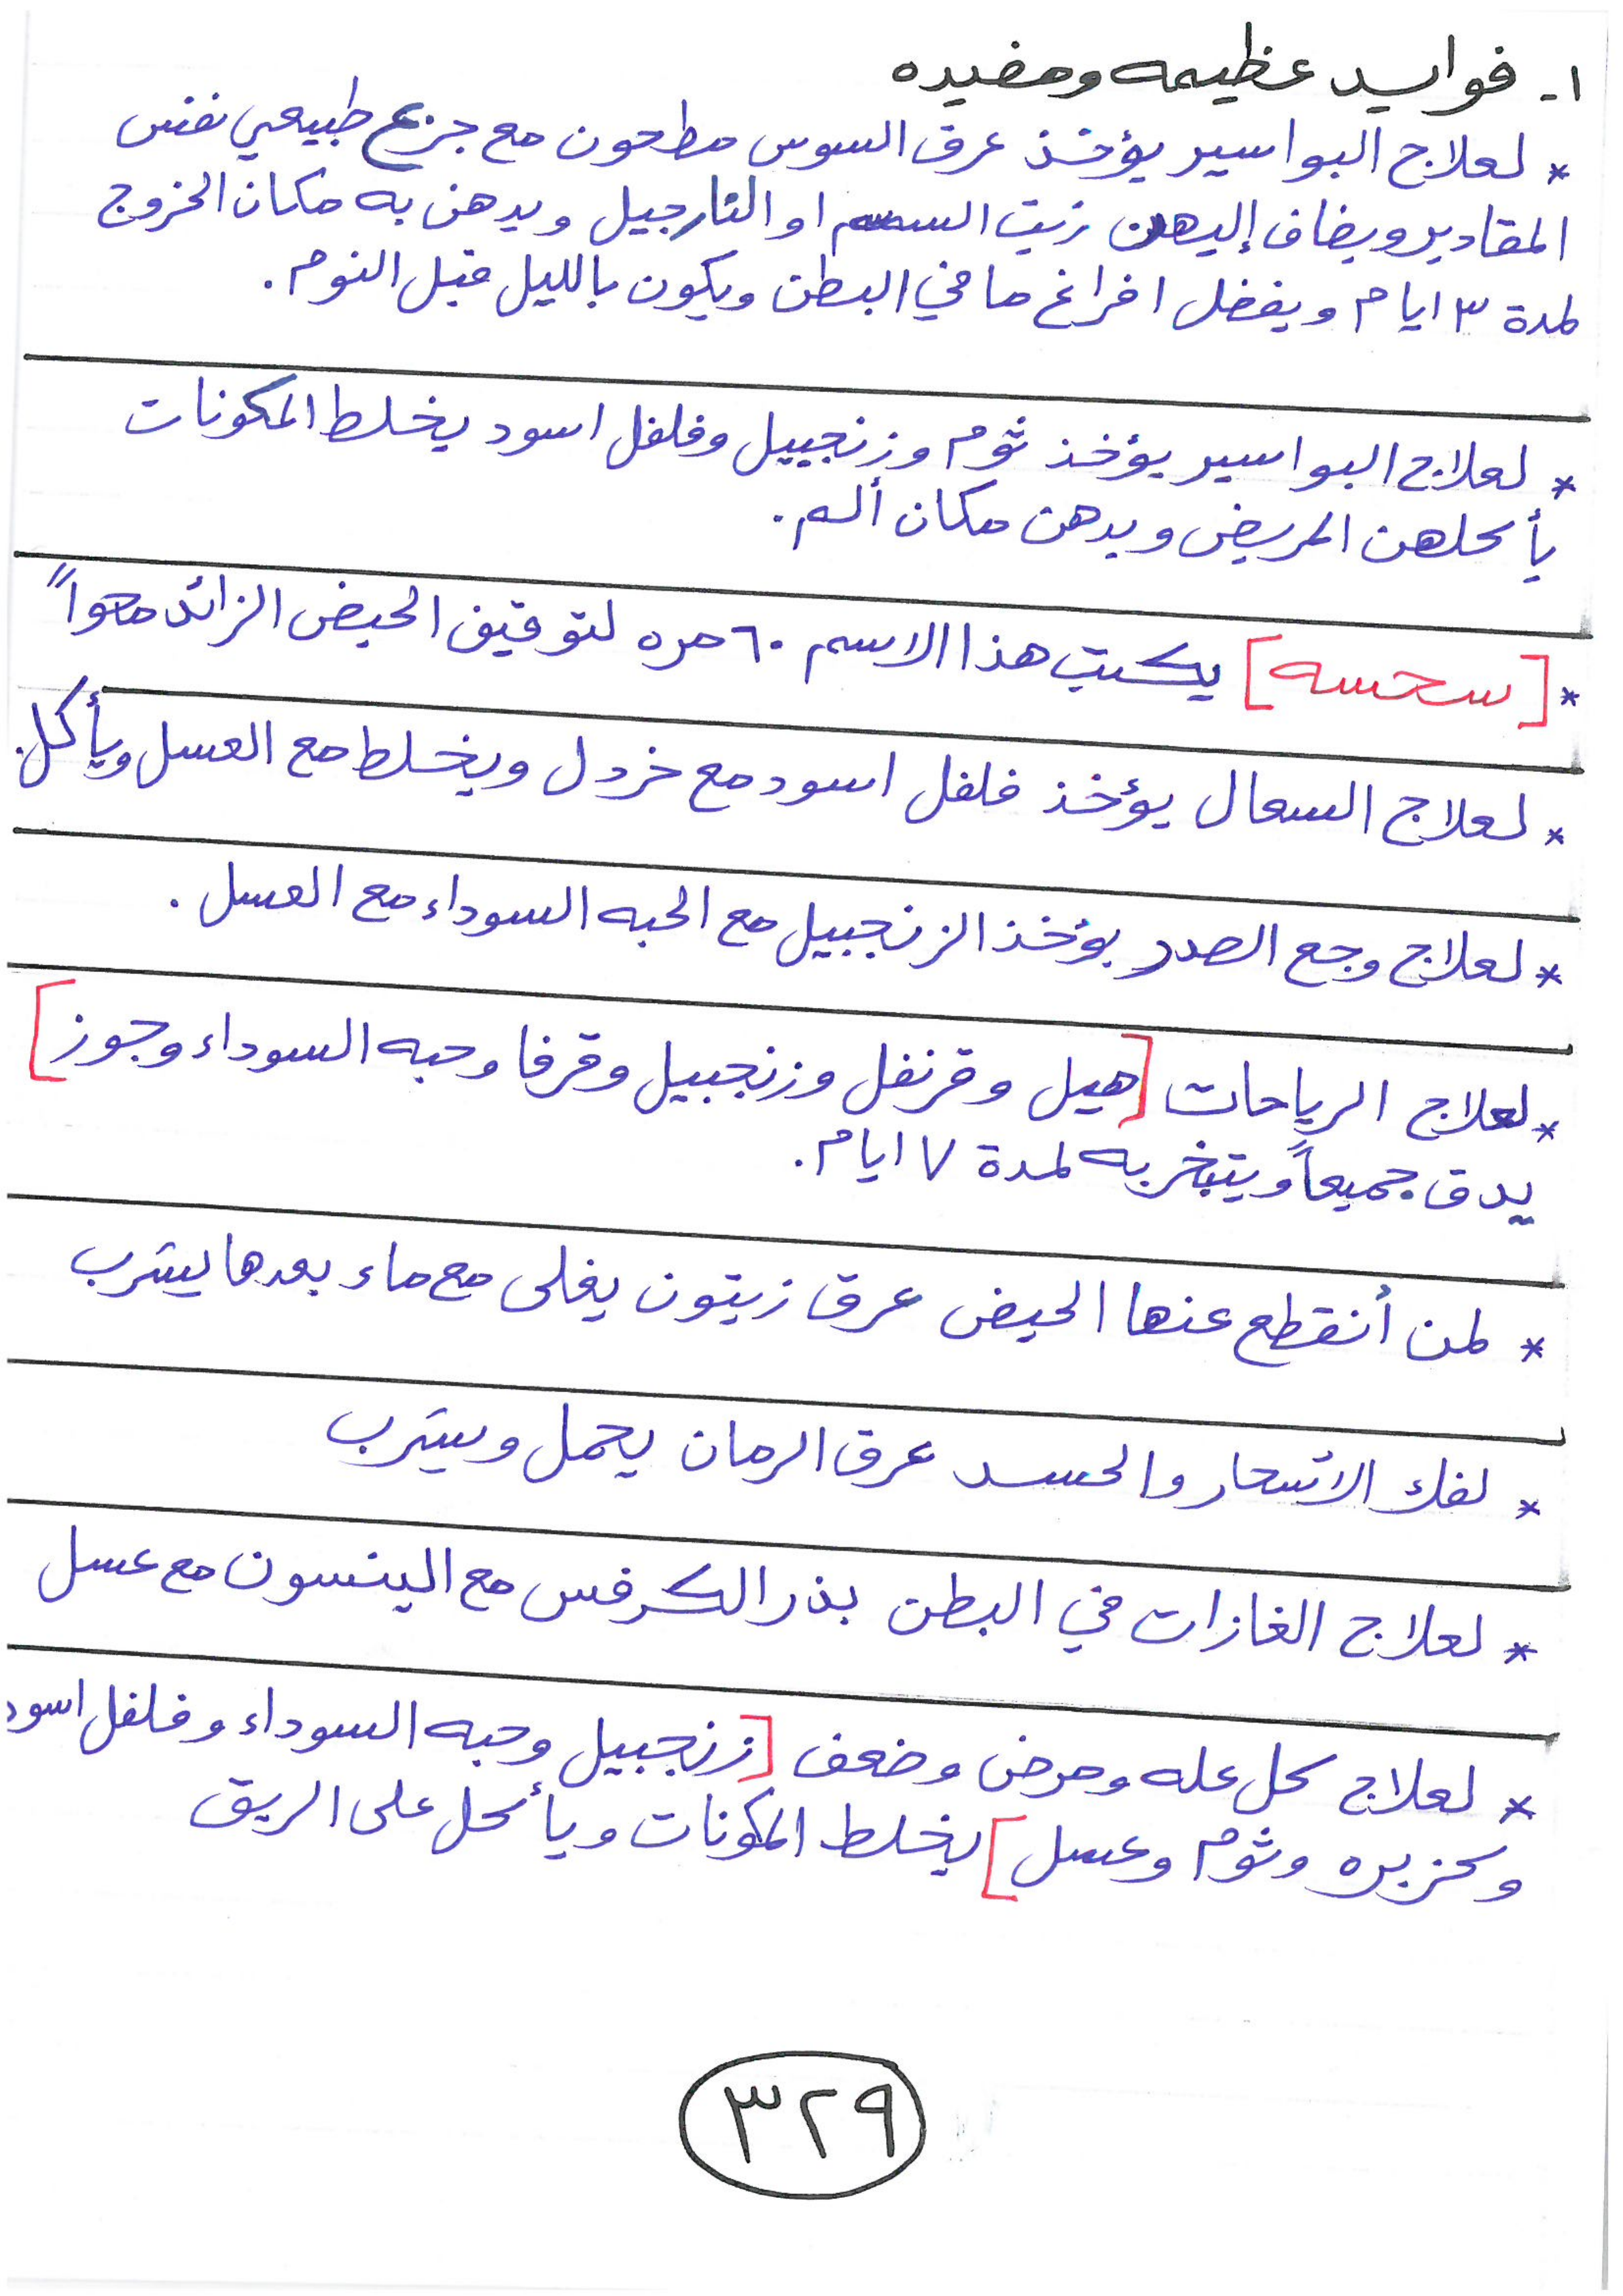 ١- فوايد عظيمه ومفيده
* لعلاج البواسير يؤخذ عرق السوس مطحون مع جزع طبيعي نفس
المقادير ويضاف إليهن زيت السمسم او النارجيل ويدهن به مكان الخروج
لمدة ٣ ايام ويفضل افراغ ما في البطن ويكون بالليل قبل النوم.
* لعلاج البواسير يؤخذ ثوم وزنجبيل وفلفل اسود يخلط المكونات
يأكلهن المريض ويدهن مكان ألم.
* [سحسه] يكتب هذا الاسم ٦٠ مره لتوقيف الحيض الزائد محواً
* لعلاج السعال يؤخذ فلفل اسود مع خردل ويخلط مع العسل ويأكل.
* لعلاج وجع الصدر يؤخذ الزنجبيل مع الحبه السوداء مع العسل.
* لعلاج الرياحات [هيل وقرنفل وزنجبيل وقرفا وحبه السوداء وجوز]
يدق جميعاً ويتبخر به لمدة ٧ ايام.
* لمن أنقطع عنها الحيض عرق زيتون يغلى مع ماء بعدها يشرب
* لفك الاسحار والحسد عرق الرمان يحمل ويشرب
* لعلاج الغازات في البطن بذر الكرفس مع الينسون مع عسل
* لعلاج كل عله ومرض وضعف [زنجبيل وحبه السوداء وفلفل اسود
وكزبره وثوم وعسل] يخلط المكونات ويأكل على الريق
٣٢٩